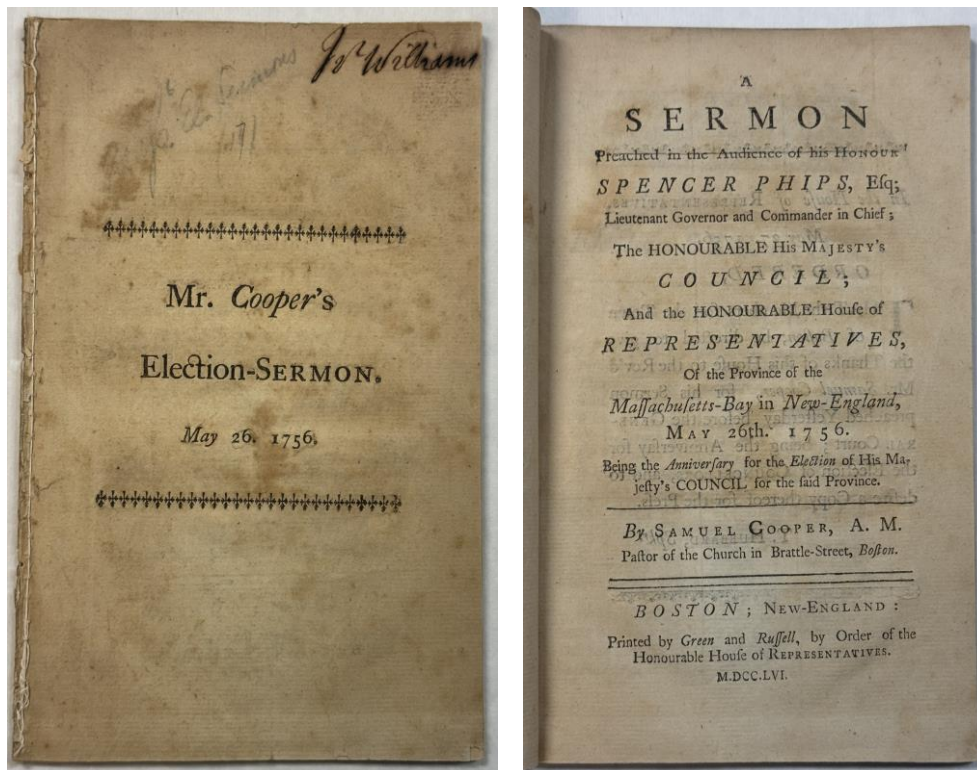 Wm Williams
Sermons
Mr. Cooper's
Election-SERMON.
May 26. 1756.
A
SERMON
Preached in the Audience of his HONOUR
SPENCER PHIPS, Eſq;
Lieutenant Governor and Commander in Chief;
The HONOURABLE His MAJESTY's
COUNCIL;
And the HONOURABLE Houſe of
REPRESENTATIVES,
Of the Province of the
Maſſachuſetts-Bay in New-England,
MAY 26th. 1756.
Being the Anniverſary for the Election of His Ma-
jeſty's COUNCIL for the ſaid Province.
By SAMUEL COOPER, A. M.
Paſtor of the Church in Brattle-Street, Boſton.
BOSTON; NEW-ENGLAND:
Printed by Green and Ruſſell, by Order of the
Honourable Houſe of REPRESENTATIVES.
M.DCC.LVI.